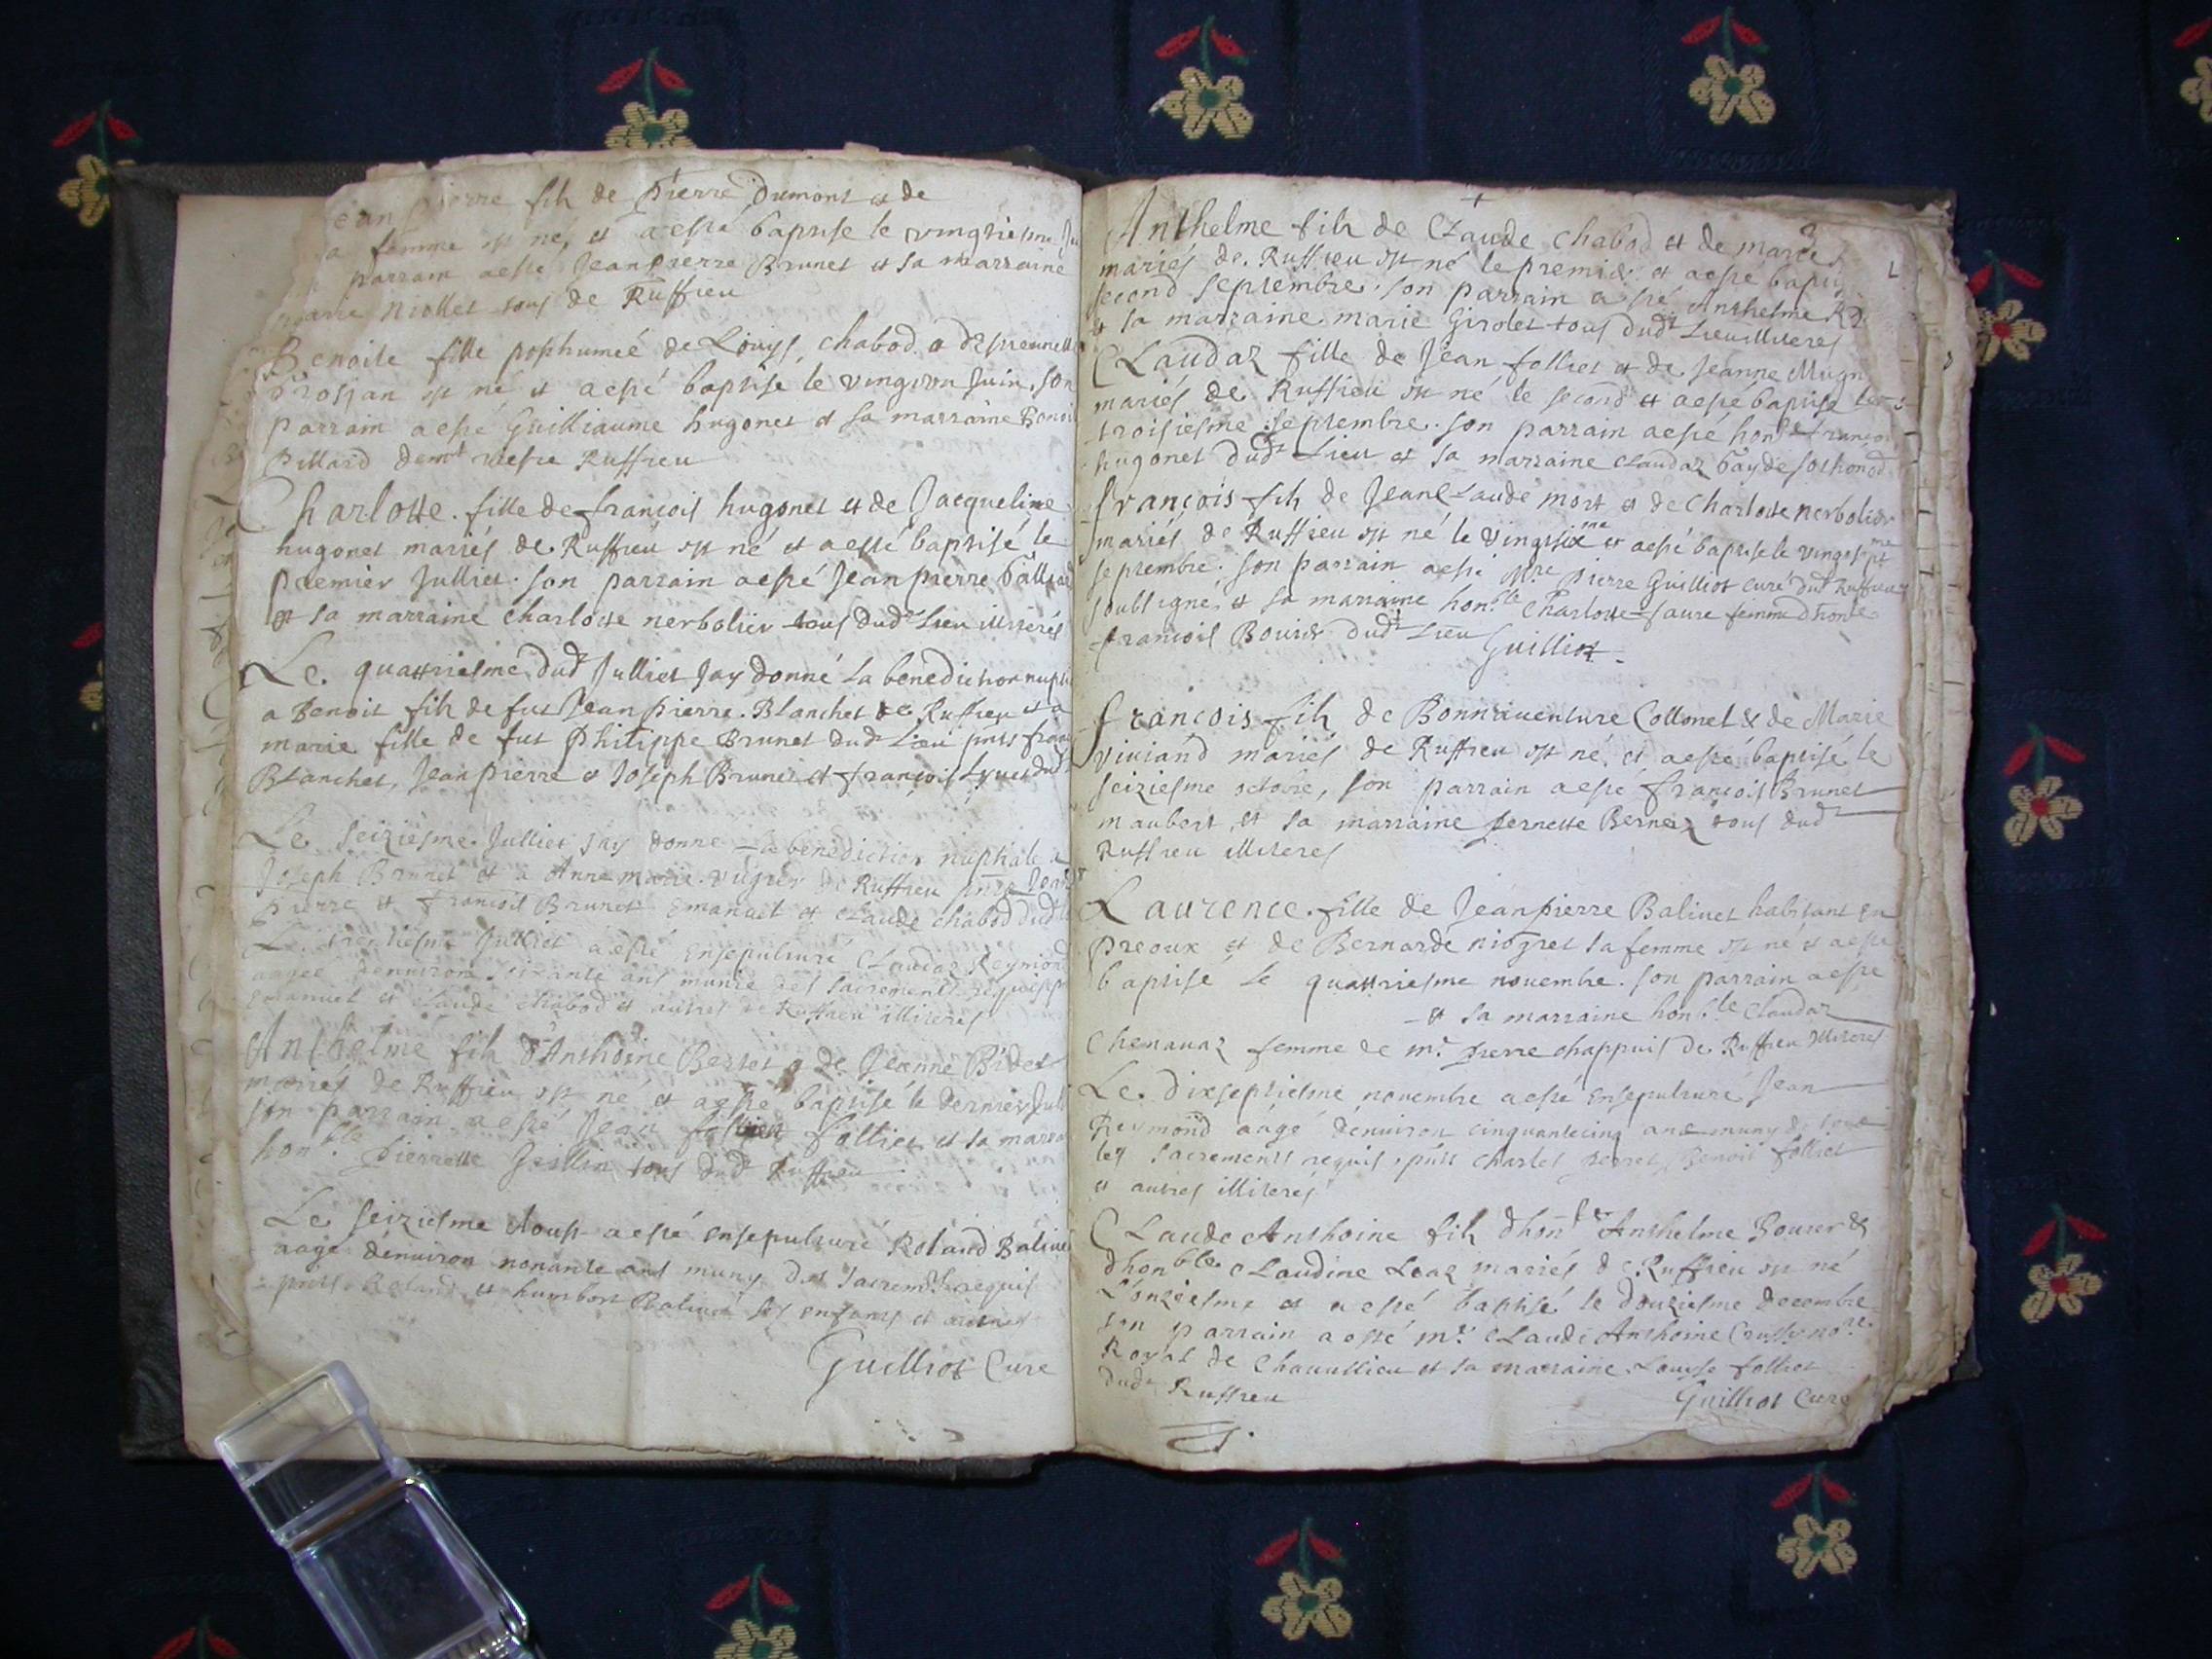 Jean pierre fils de Pierre Dumont et de
sa femme est né, et a esté baptise le vingtiesme Ju
parrain a esté Jean pierre Brunet et sa marraine
marie Niollet tous de Ruffieu
Benoite fille posthumeé de Louys chabod & de
est né et a esté baptise le vingt un Juin, son
parrain a esté Guilliaume hugonet et sa marraine Benoi
Pillard demt riere Ruffieu
Charlotte fille de françois hugonet et de Jacqueline
hugonet mariés de Ruffieu est né et a esté baptisé le
premier Julliet. son parrain a esté Jean pierre
et sa marraine charlotte nerbolier tous dudt Lieu illiterés
Le quattriesme dudt Julliet Jay donné la benediction nupti
a Benoit fils de fut Jean pierre Blanchet de Ruffieu et a
marie fille de fut Philippe Brunet dudt Lieu pnts fran
Blanchet, Jean pierre & Joseph Brunet et françois Lyvet dudt
Le seiziesme Julliet Jay donné la benediction nuptiale a
Joseph Brunet et a Anne marie vugier de Ruffieu pnts Jean
pierre et françois Brunet Emanuel et claude chabod dudt
Le trentiesme Julliet a esté Ensepulturé Claudaz Reymond
aageé denuiron soixante ans munie des sacrements requis pnts
Emanuel et claude chabod et autres de Ruffieu illiteres
Anthelme fils d'Anthoine Bertet & de Jeanne Bidet
mariés de Ruffieu est né et a esté baptisé le dernier Jull
son parrain a esté Jean folliet et sa marra
honble. pierrette Guillin tous dudt Ruffieu
Le seiziesme Aoust a esté ensepulturé Roland Baliue
aagé denuiron nonante ans muny des sacremts requis
pnts Roland et humbert Baliuet ses enfans et autres
Guilliot Cure
Anthelme fils de Claude chabod et de marie
mariés de Ruffieu est né le premier et a esté bapti
second septembre. son parrain a esté Anthelme
et sa marraine marie Girolet tous dudt Lieu illiteres
Claudaz fille de Jean folliet et de Jeanne Mugn
mariés de Ruffieu est né le second et a esté baptise le
troisiesme septembre. son parrain a esté honble francois
hugonet dudt Lieu et sa marraine claudaz bay de sothonod
françois fils de Jean Claude mort et de Charlotte nerbolier
mariés de Ruffieu est né le vingtsixme et a esté baptise le vingtseptme
septembre. son parrain a esté Mre pierre Guilliot curé dudt Ruffieu
soubsigné, et sa marraine honble Charlotte faure femme dhonble
francois Bouier dudt Lieu
Guilliot
francois fils de Bonnauenture Collonet & de Marie
viuiand mariés de Ruffieu est né, et a esté baptisé le
seiziesme octobre, son parrain a esté francois Brunet
maubert, et sa marraine pernette Bernez tous dudt
Ruffieu illiteres
Laurence fille de Jean pierre Baliuet habitant en
preoux et de Bernarde niogret sa femme est né et a esté
baptise Le quattriesme nouembre. son parrain a esté
et sa marraine honble Claudaz
Chenauaz femme de mr. pierre chappuis de Ruffieu illiteres
Le dixseptiesme nouembre a esté Ensepulturé Jean
Reymond aagé denuiron cinquantecinq ans muny de tous
les sacrements requis, pnts charles perret, Benoit folliet
et autres illiterés
Claude Anthoine fils dhonble Anthelme Bouier &
dhonble Claudine Leaz mariés de Ruffieu est né
L'onziesme et a esté baptisé le douziesme decembre
son parrain a esté mr. Claude Anthoine nore
Royal de Chauillieu et sa marraine Louyse folliet
dudt Ruffieu
Guilliot Cure